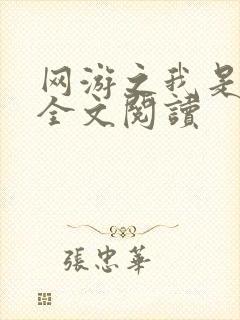 网游之我是
全文閱讀
張忠華